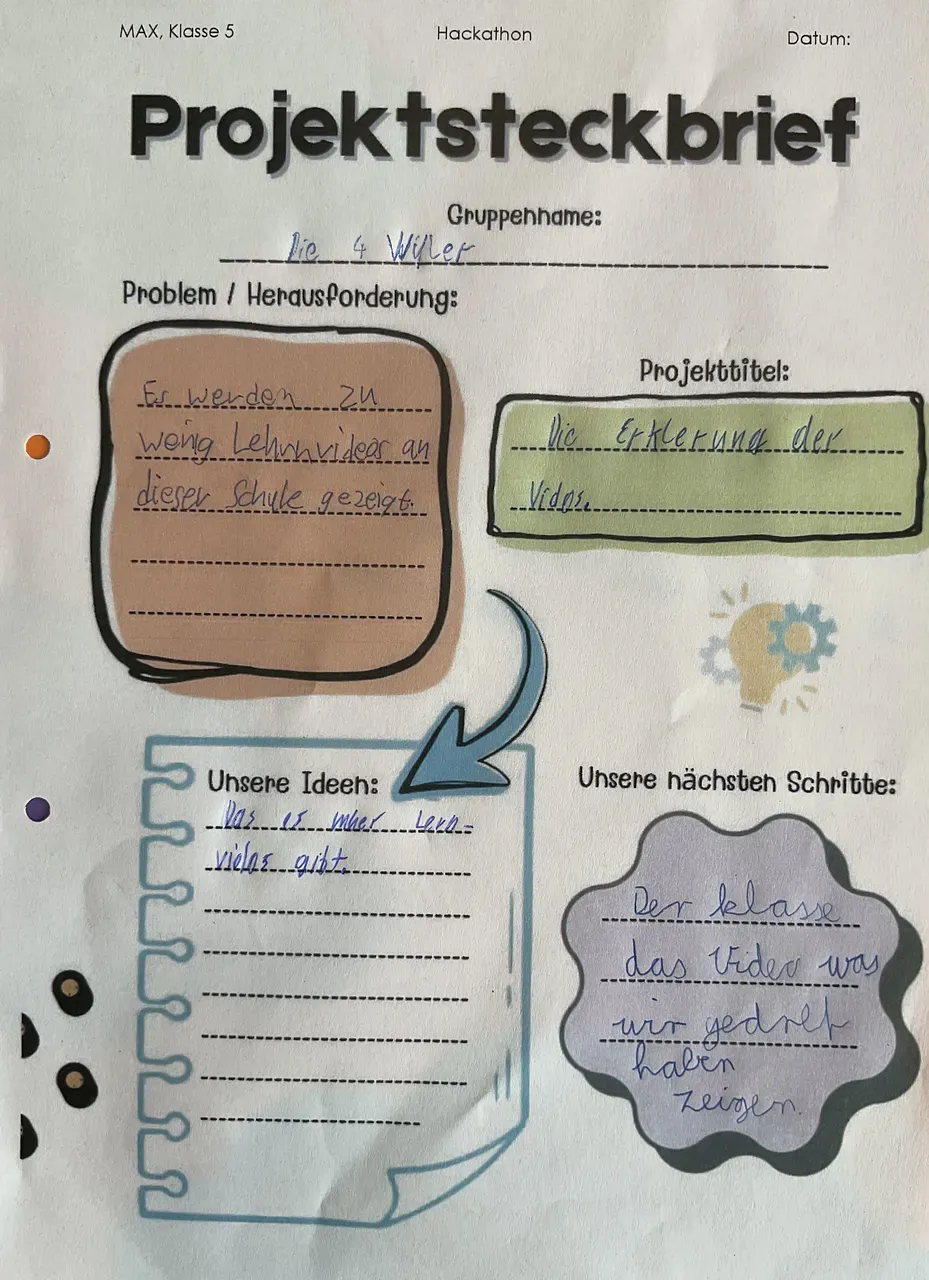 MAX, Klasse 5
Hackathon
Datum:
Projektsteckbrief
Gruppenname:
Die 4 Wißer
Problem / Herausforderung:
Es werden zu
wenig Lehrnvideos an
dieser Schule gezeigt.
Projekttitel:
Die Erklerung der
Vidos.
Unsere Ideen:
Das es mher Lern-
vieos gibt.
Unsere nächsten Schritte:
Der klasse
das Video was
wir gedreht
haben
zeigen.